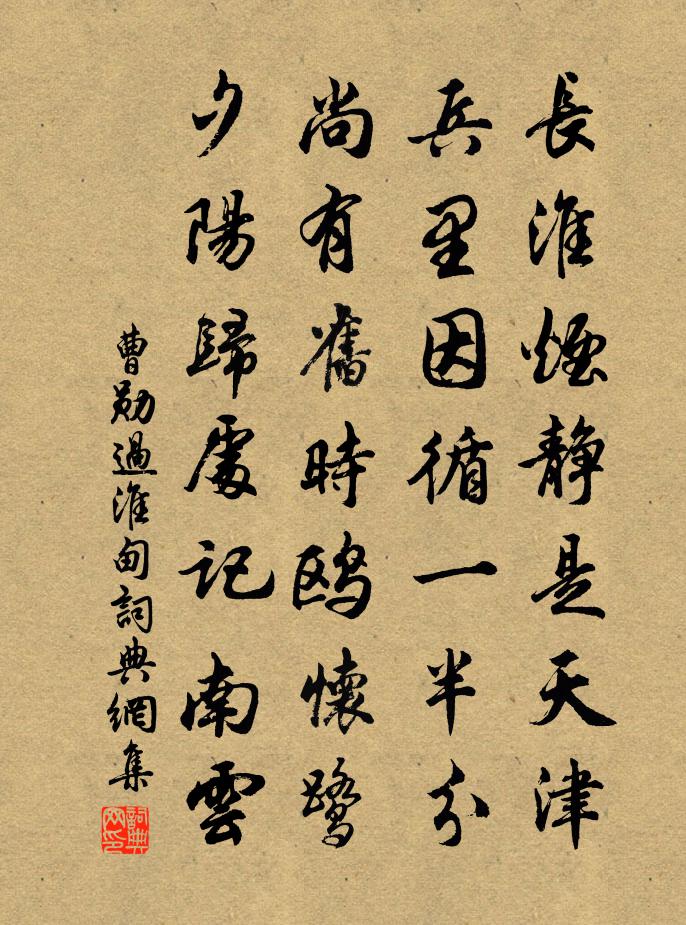 長淮煙靜是天津
兵里因循一半分
尚有舊時鷗懷鷺
夕陽歸處記南雲
曹勛過淮甸詞典網集
詞典网印